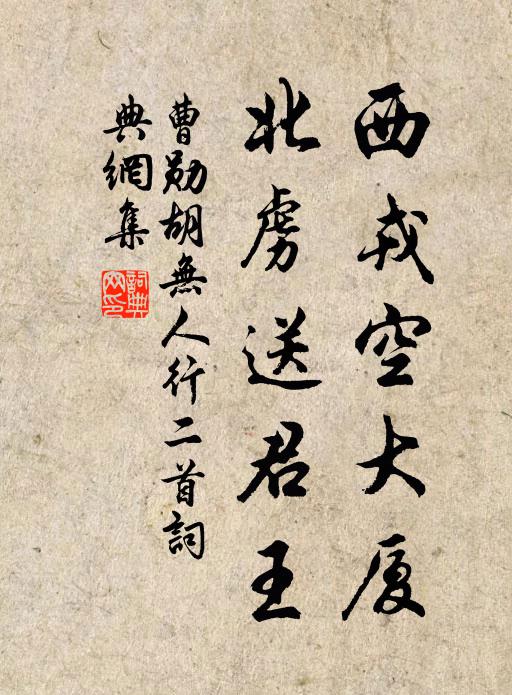 西戎空大厦
北虏送君王
曹勋胡無人行二首詞
典網集
詞典网印